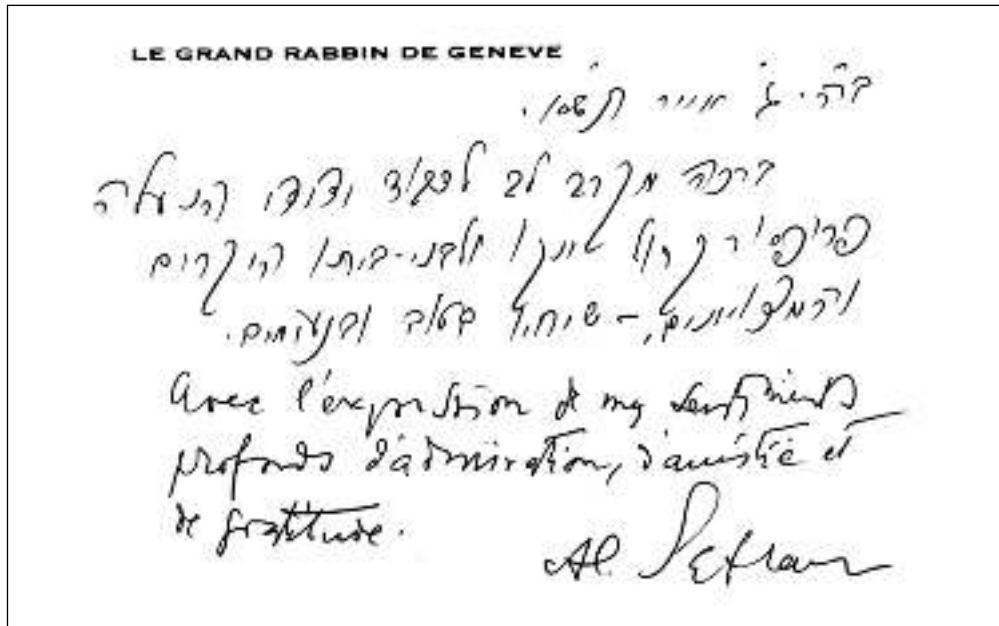 LE GRAND RABBIN DE GENEVE
ב״ה. ג׳ אייר
ברכה מקרב לב לכבוד ידידי הנעלה
פרופסור קרל ולבני-ביתו היקרים
והמצויינים, – בטוב ובנעימים.
Avec l'expression de mes sentiments
profonds d'admiration, d'amitié et
de gratitude.
Al. Safran